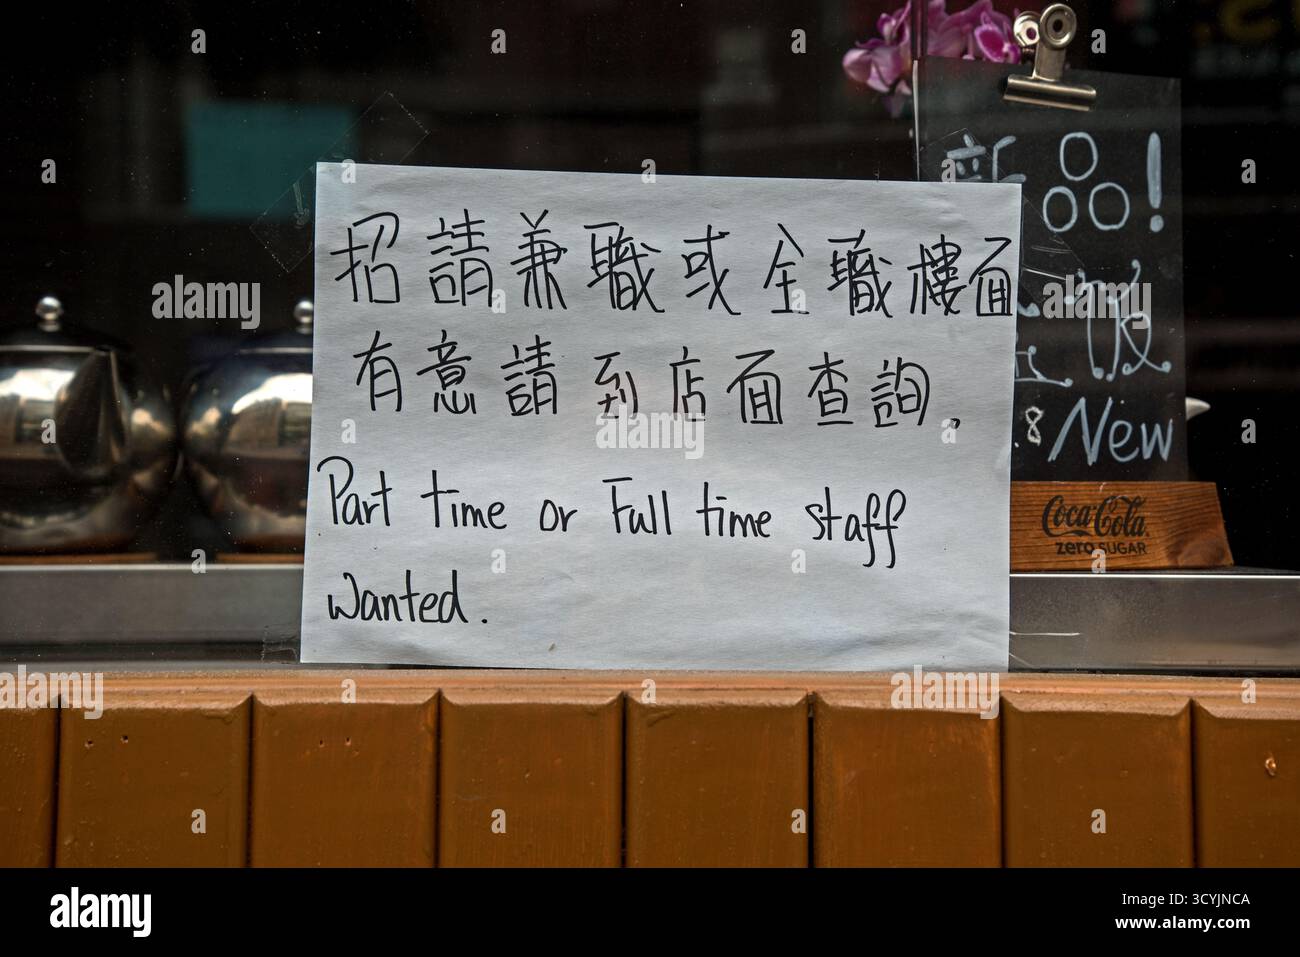 招請兼職或全職樓面
有意請到店面查詢.
Part time or Full time staff
Wanted.
新品!
.8 New
Coca-Cola
zero SUGAR
alamy
Image ID: 3CYJNCA
www.alamy.com